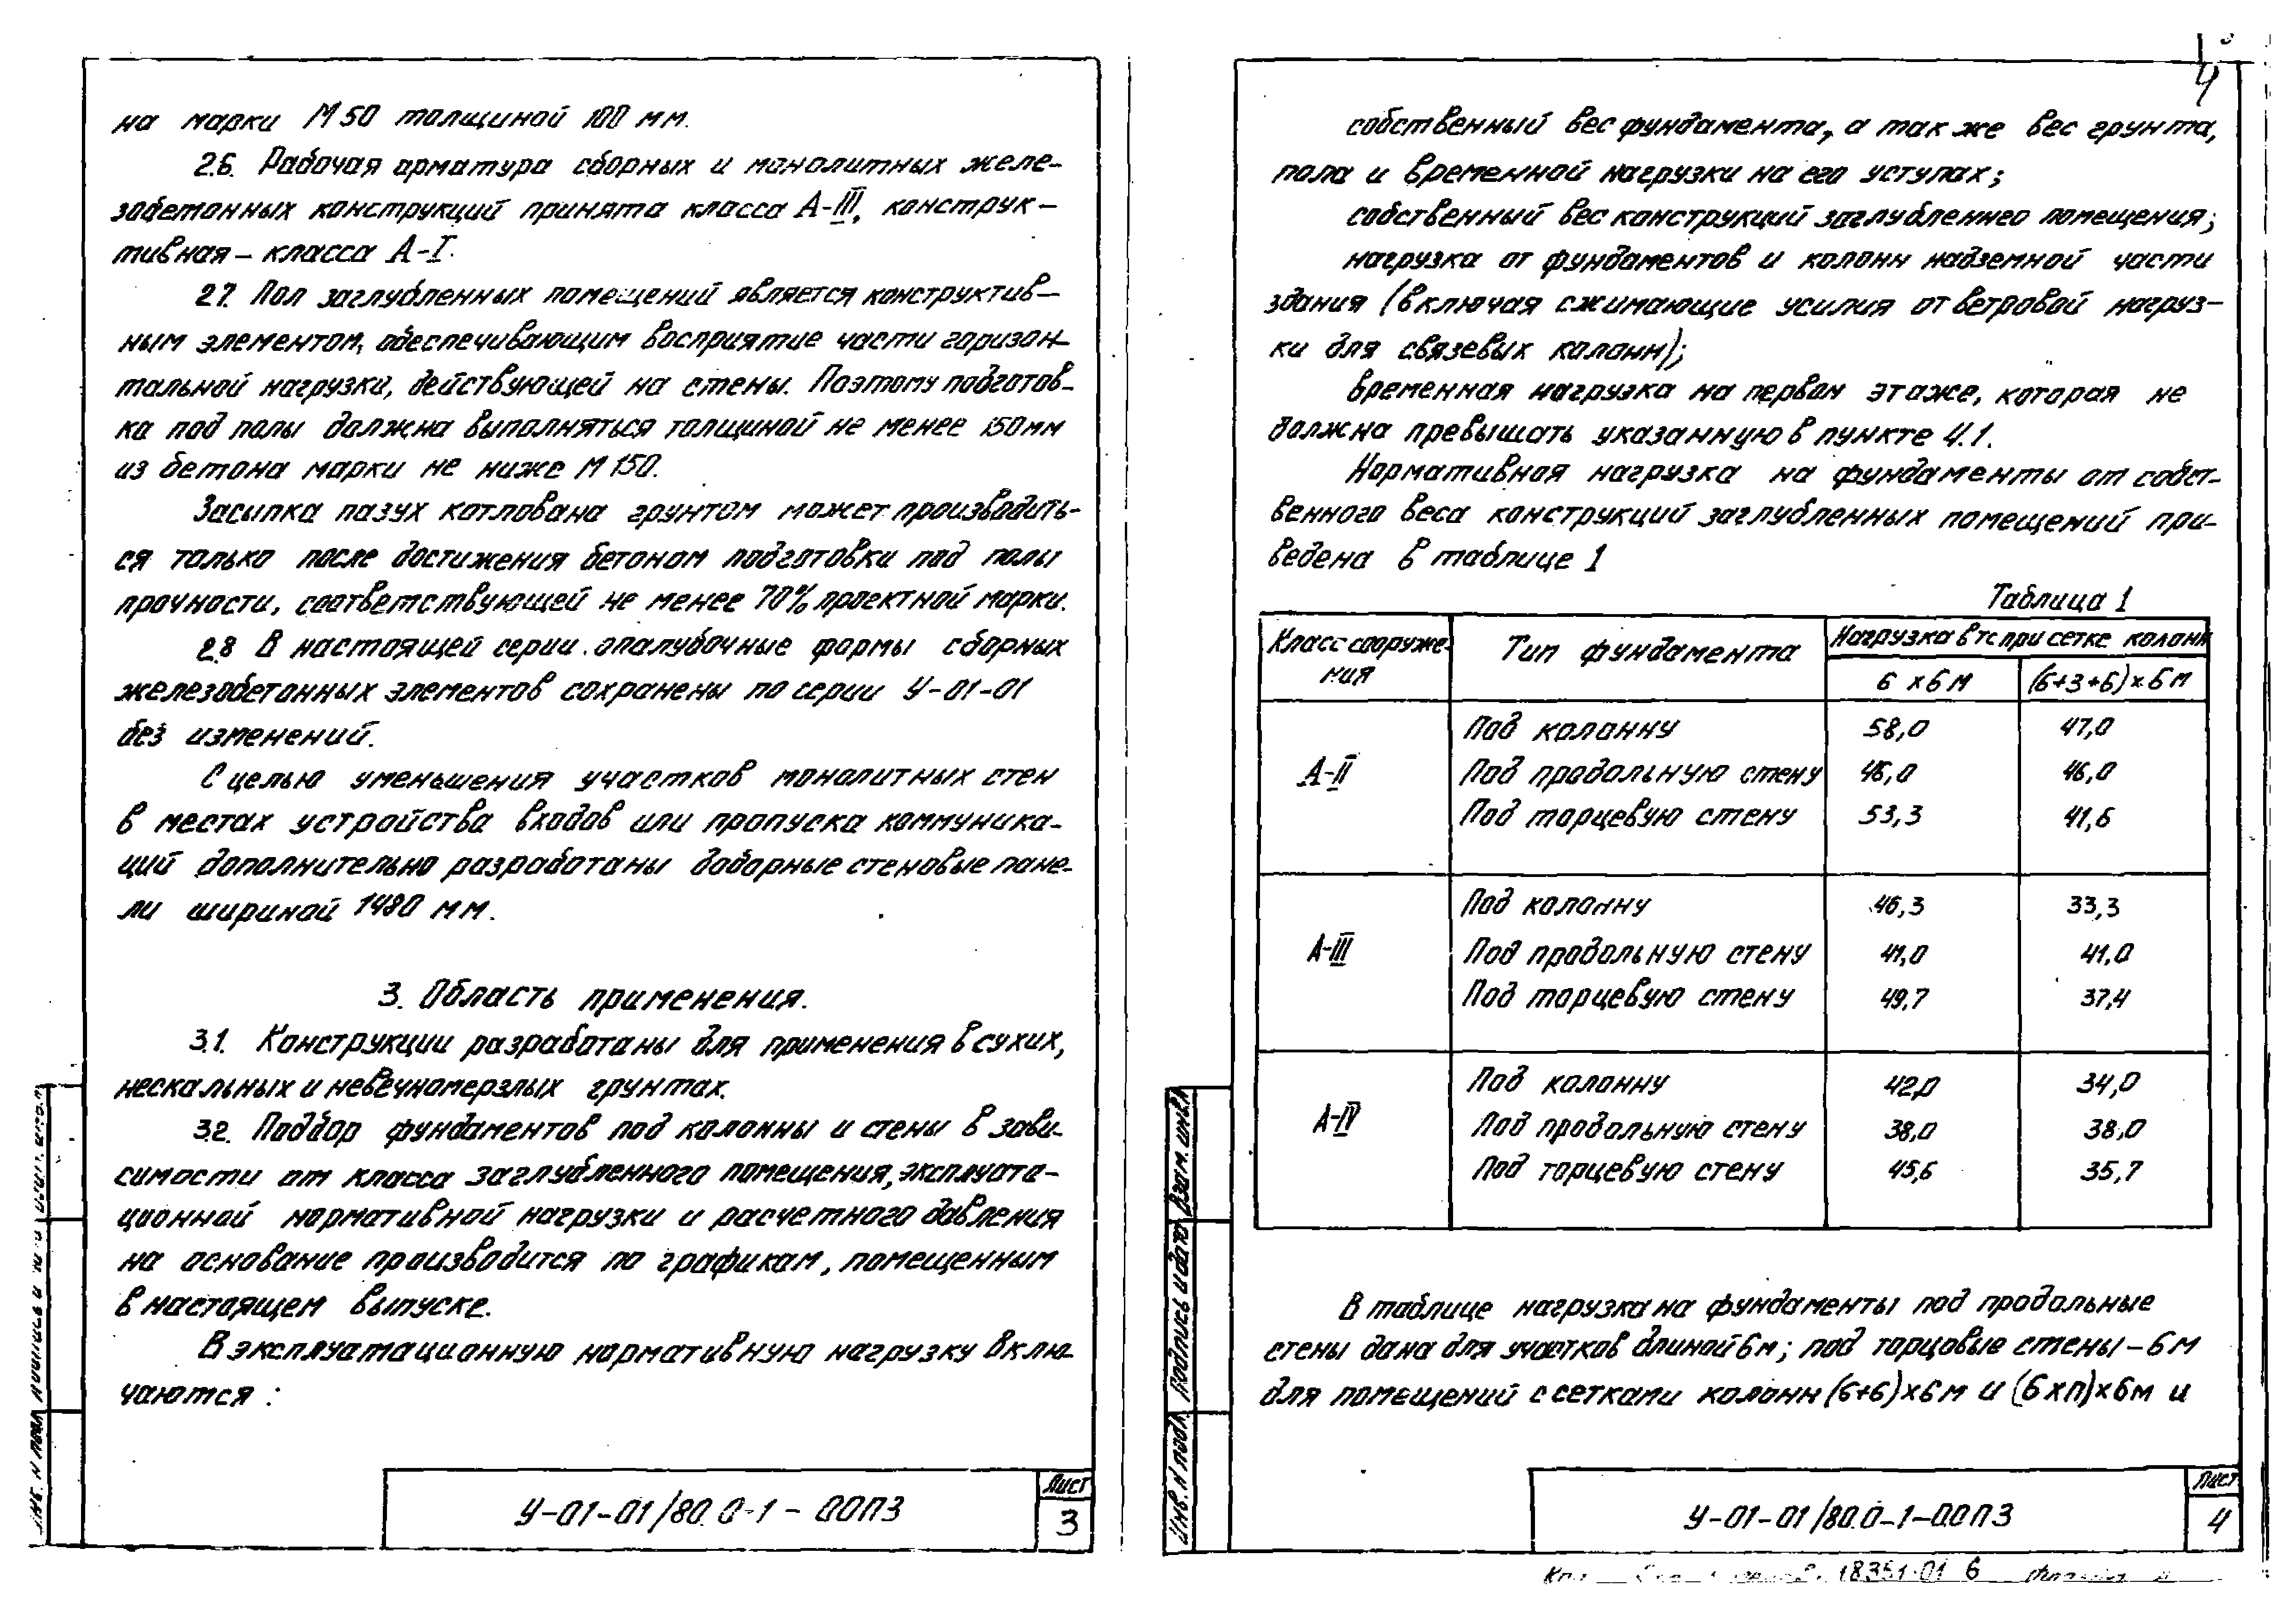 на марки М50 толщиной 100 мм.
2.6. Рабочая арматура сборных и монолитных желе-
зобетонных конструкций принята класса А-III, конструк-
тивная – класса А-I.
2.7. Пол заглубленных помещений является конструктив-
ным элементом, обеспечивающим восприятие части горизон-
тальной нагрузки, действующей на стены. Поэтому подготов-
ка под полы должна выполняться толщиной не менее 150мм
из бетона марки не ниже М150.
Засыпка пазух котлована грунтом может производить-
ся только после достижения бетоном подготовки под полы
прочности, соответствующей не менее 70% проектной марки.
2.8 В настоящей серии опалубочные формы сборных
железобетонных элементов сохранены по серии У-01-01
без изменений.
С целью уменьшения участков монолитных стен
в местах устройства входов или пропуска коммуника-
ций дополнительно разработаны доборные стеновые пане-
ли шириной 1480 мм.
3. Область применения.
3.1. Конструкции разработаны для применения в сухих,
нескальных и невечномерзлых грунтах.
3.2. Подбор фундаментов под колонны и стены в зави-
симости от класса заглубленного помещения, эксплуата-
ционной нормативной нагрузки и расчетного давления
на основание производится по графикам, помещенным
в настоящем выпуске.
В эксплуатационную нормативную нагрузку вклю-
чаются :
У-01-01/80.0-1-00ПЗ
Лист
3
4
собственный вес фундамента, а также вес грунта,
пола и временной нагрузки на его уступах;
собственный вес конструкций заглубленнего помещения;
нагрузка от фундаментов и колонн надземной части
здания (включая сжимающие усилия от ветровой нагруз-
ки для связевых колонн);
временная нагрузка на первом этаже, которая не
должна превышать указанную в пункте 4.1.
Нормативная нагрузка на фундаменты от собст-
венного веса конструкций заглубленных помещений при-
ведена в таблице 1
Таблица 1
Класс сооруже- Тип фундамента Нагрузка в тс при сетке колонн
ния 6 х 6 м (6+3+6)х6м
Под колонну 58,0 47,0
А-II Под продольную стену 46,0 46,0
Под торцевую стену 53,3 41,6
Под колонну 46,3 33,3
А-III Под продольную стену 41,0 41,0
Под торцевую стену 49,7 37,4
Под колонну 42,0 34,0
А-IV Под продольную стену 38,0 38,0
Под торцевую стену 45,6 35,7
В таблице нагрузка на фундаменты под продольные
стены дана для участков длиной 6м; под торцовые стены – 6м
для помещений с сетками колонн (6+6)х6м и (6хп)х6м и
Взам. инв. N
Подпись и дата
Инв. N подл.
У-01-01/80.0-1-00ПЗ
Лист
4
18351-01 6